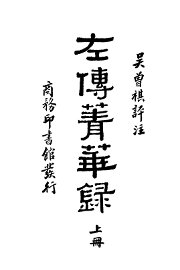 吳曾祺評注
左傳菁華錄
上冊
商務印書館發行